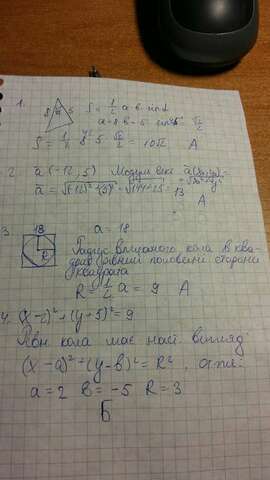 1.
8 45° 5 S = 1/2 a b sin α
a = 8 b = 5 sin 45° √2/2
S = 1/2 · 8 · 5 · √2/2 = 10√2 А
2. a(-12, 5) Модуль
a = √(-12)² + (5)² = √144 + 25 = 13
А
3. 18 a = 18
Радіус вписаного кола в ква-
драт рівний половині сторони
квадрата
R = 1/2 a = 9 А
4. (x - 2)² + (y + 5)² = 9
Рівн кола має наст. вигляд:
(x - a)² + (y - b)² = R², отже:
a = 2 b = -5 R = 3
Б